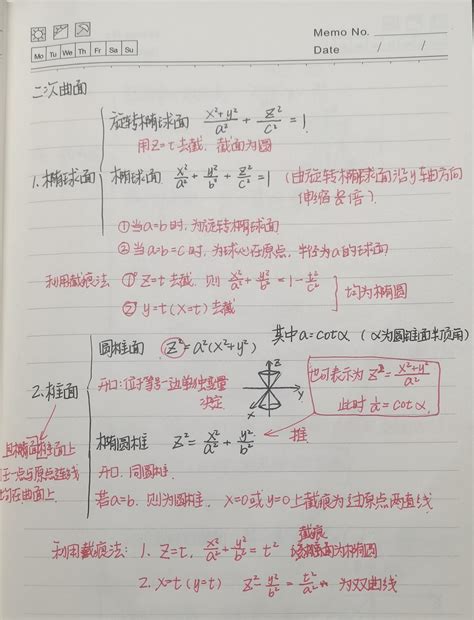 Memo No.
Mo Tu We Th Fr Sa Su
Date / /
二次曲面
旋转椭球面 (x²+y²)/a² + z²/c² = 1
用z=t去截, 截面为圆
1. 椭球面
椭球面 x²/a² + y²/b² + z²/c² = 1 (由旋转椭球面沿y轴方向
伸缩 倍)
①当a=b时, 为旋转椭球面
②当a=b=c时, 为球心在原点, 半径为a的球面
利用截痕法 ① z=t去截, 则 x²/a² + y²/b² = 1 - t²/c²
② y=t (x=t) 去截
均为椭圆
圆锥面 z²=a²(x²+y²) 其中a=cotα (α为圆锥面半顶角)
2. 锥面
开口: 位于等号一边单独变量
决定
z
y
x
也可表示为 z²=(x²+y²)/a²
此时 1/a = cotα.
椭圆锥 z²= x²/a² + y²/b² ← 推
且椭圆锥面上
任一点与原点连线
均在曲面上
开口: 同圆锥.
若a=b. 则为圆锥. x=0或y=0上截痕为过原点两直线
利用截痕法: 1. z=t, x²/a² + y²/b² = t² 截痕 为椭圆
2. x=t (y=t) z² - y²/b² = t²/a² 为双曲线